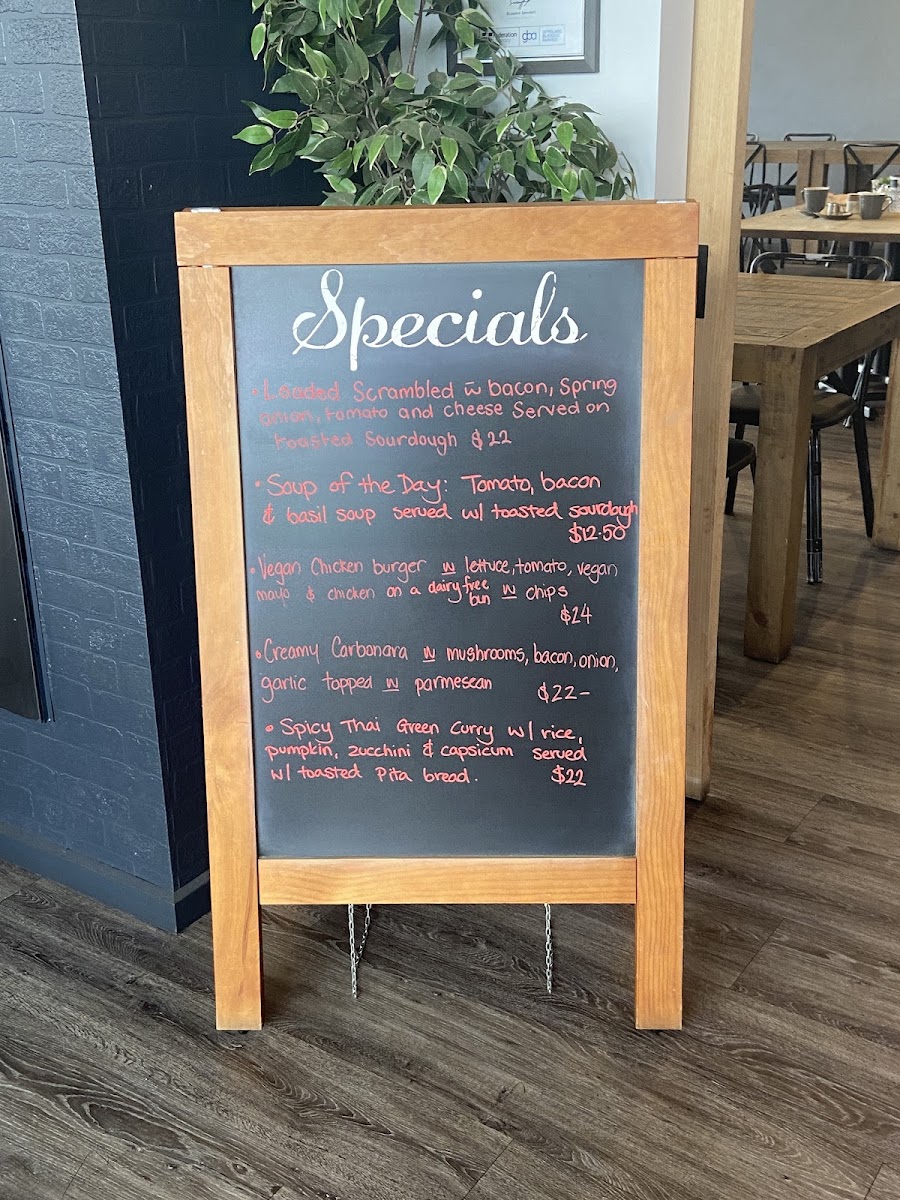 deration
gba
Specials
• Loaded Scrambled w̄ bacon, Spring
onion, tomato and cheese Served on
toasted Sourdough $22
• Soup of the Day: Tomato, bacon
& basil soup served w/ toasted sourdough
$12.50
• Vegan Chicken burger w lettuce, tomato, vegan
mayo & chicken on a dairy free
bun w chips
$24
• Creamy Carbonara w mushrooms, bacon, onion,
garlic topped w parmesean $22-
• Spicy Thai Green Curry w/ rice,
pumpkin, zucchini & capsicum served
w/ toasted Pita bread. $22